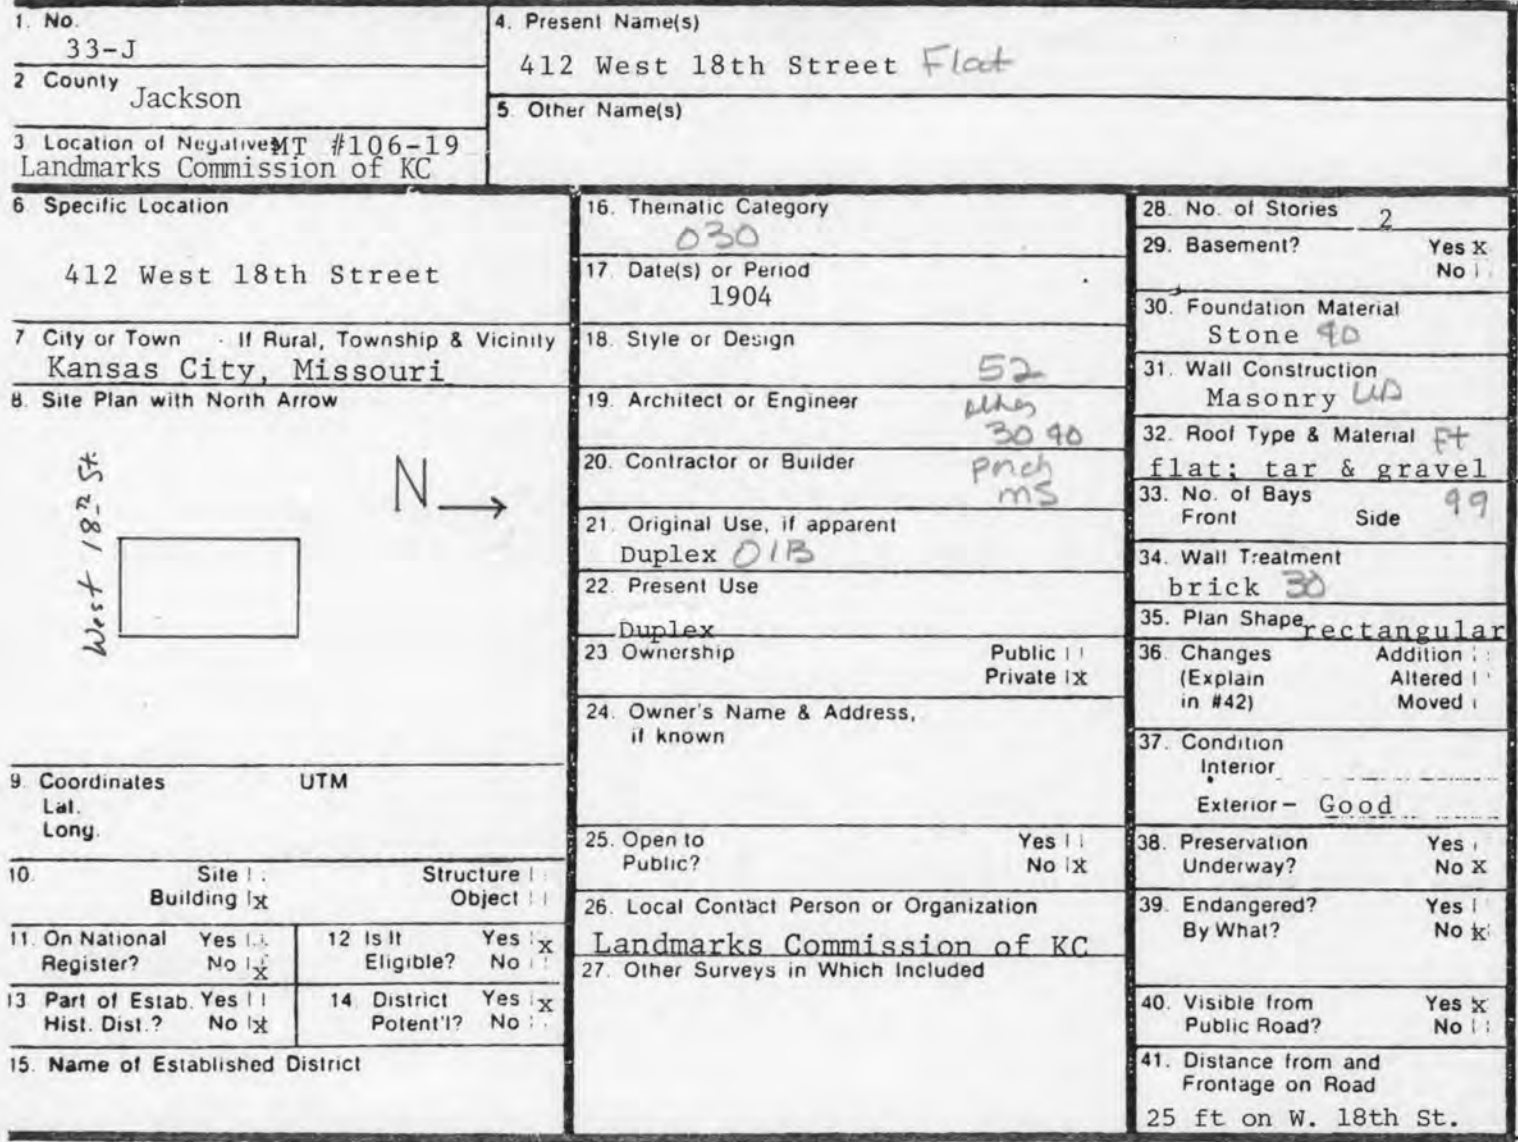 1. No.
33-J
2 County
Jackson
3 Location of Negative MT #106-19
Landmarks Commission of KC
4. Present Name(s)
412 West 18th Street Flat
5. Other Name(s)
6. Specific Location
412 West 18th Street
7 City or Town If Rural, Township & Vicinity
Kansas City, Missouri
8. Site Plan with North Arrow
West 18th St.
N
9. Coordinates UTM
Lat.
Long.
10. Site Structure
Building x Object
11. On National Yes
Register? No x
12 Is It Yes x
Eligible? No
13 Part of Estab. Yes
Hist. Dist.? No x
14. District Yes x
Potent'l? No
15. Name of Established District
16. Thematic Category
030
17. Date(s) or Period
1904
18. Style or Design
52
19. Architect or Engineer
30 40
20. Contractor or Builder
porch
ms
21. Original Use, if apparent
Duplex 01B
22. Present Use
Duplex
23 Ownership Public
Private x
24. Owner's Name & Address,
if known
25. Open to Yes
Public? No x
26. Local Contact Person or Organization
Landmarks Commission of KC
27. Other Surveys in Which Included
28. No. of Stories 2
29. Basement? Yes x
No
30. Foundation Material
Stone 40
31. Wall Construction
Masonry UD
32. Roof Type & Material Ft
flat; tar & gravel
33. No. of Bays 99
Front Side
34. Wall Treatment
brick 30
35. Plan Shape rectangular
36. Changes Addition
(Explain Altered
in #42) Moved
37. Condition
Interior
Exterior – Good
38. Preservation Yes
Underway? No x
39. Endangered? Yes
By What? No x
40. Visible from Yes x
Public Road? No
41. Distance from and
Frontage on Road
25 ft on W. 18th St.